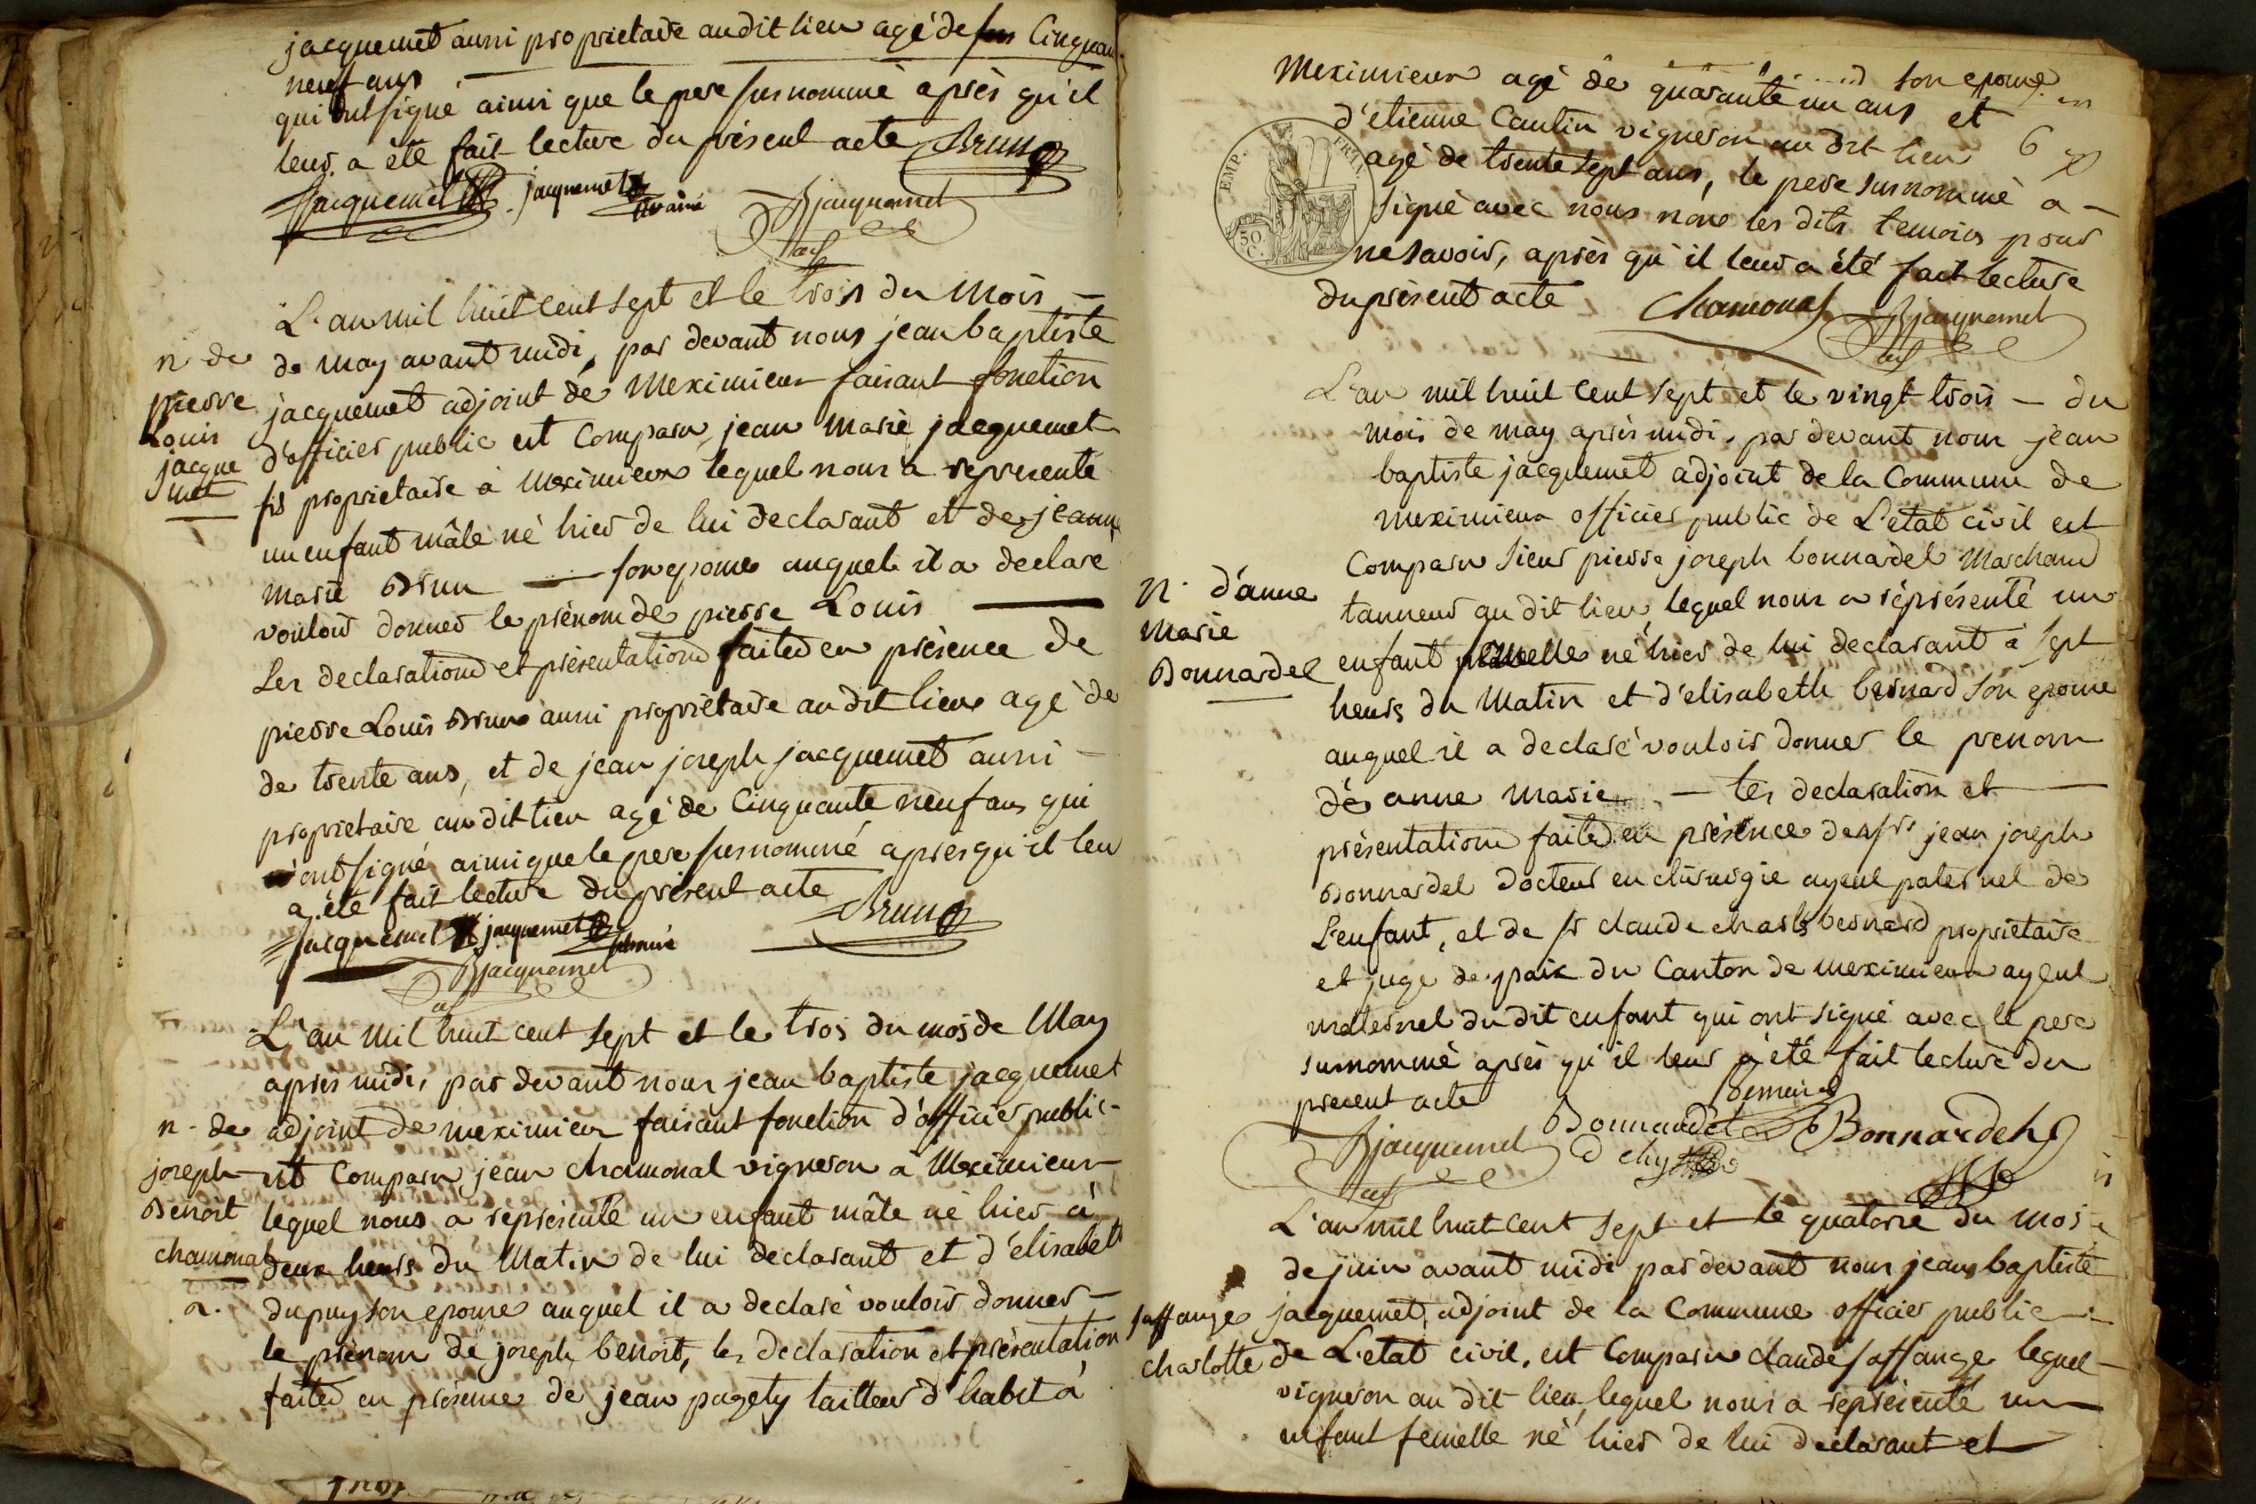 jacquemet aussi proprietaire audit lieu agé de Cinquante
neuf ans
qui ont signé ainsi que le pere susnommé après qu'il
leur a été fait lecture du présent acte Brun
Jacquemet jacquemet ainé Bjacquemet
adj
L'an mil huit cent sept et le trois du mois –
de may avant midi, par devant nous jean baptiste
n. de
pierre
Louis
jacque
met
jacquemet adjoint de meximieux faisant fonction
d'officier public est Comparu jean marie jacquemet
fils proprietaire à meximieux lequel nous a representé
un enfant mâle né hier de lui declarant et de jeanne
marie Brun — son epouse auquel il a declaré
vouloir donner le prénom de pierre Louis —
Les declaration et présentation faites en présence de
pierre Louis Brun aussi propriétaire au dit lieu agé de
de trente ans, et de jean joseph jacquemet aussi –
proprietaire au dit lieu agé de Cinquante neuf ans qui
ont signé ainsi que le pere susnommé apres qu'il leur
a été fait lecture du présent acte Brun
Jacquemet jacquemet ainé
Bjacquemet
adj
L'an mil huit cent sept et le trois du mois de May
apres midi, par devant nous jean baptiste jacquemet
n. de
joseph
Benoit
chamonal
adjoint de meximieux faisant fonction d'officier public –
est Comparu jean chamonal vigneron à Meximieux
lequel nous a représenté un enfant mâle né hier à
deux heures du Matin de lui declarant et d'élisabeth
dupuy son epouse auquel il a declaré vouloir donner –
le prénom de joseph benoit, les declaration et présentation
faites en présence de jean pagety tailleur d'habit à
son epouse
Meximieux agé de quarante un ans et
d'étienne Cantin vigneron au dit lieu
6
EMP. FRA.
50 C.
agé de trente sept ans, le pere susnommé a –
signé avec nous non les dits temoins pour
ne savoir, après qu'il leur a été fait lecture
du présent acte Chamonal Bjacquemet
adj
L'an mil huit cent sept et le vingt trois – du
mois de may après midi, par devant nous jean
baptiste jacquemet adjoint de la Commune de
meximieux officier public de L'etat civil est
Comparu Sieur pierre joseph bonnardel Marchand
n. d'anne
Marie
Bonnardel
tanneur au dit lieu, lequel nous a réprésenté un
enfant femelle né hier de lui declarant à sept
heures du Matin et d'elisabeth bernard son epouse
auquel il a declaré vouloir donner le prenom
de anne marie — les declaration et —
présentation faites en présence de sr jean joseph
Bonnardel Docteur en chirurgie ayeul paternel de
L'enfant, et de sr claude charles bernard propriétaire
et juge de paix du Canton de meximieux ayeul
maternel du dit enfant qui ont signé avec le pere
susnommé après qu'il leur a été fait lecture du
present acte
Bonnardel Bonnardel
Bjacquemet
adj
L'an mil huit cent sept et le quatorze du mois
de juin avant midi par devant nous jean baptiste
saffange
charlotte
jacquemet adjoint de la Commune officier public –
de L'etat civil, est Comparu claude saffange lequel –
vigneron au dit lieu, lequel nous a représenté un
enfant femelle né hier de lui declarant et